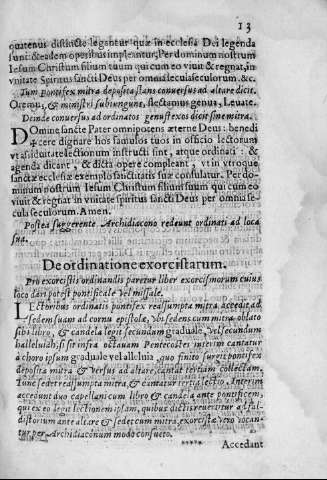 13
quatenus distincte legantur quæ in ecclesia Dei legenda
sunt: & eadem operibus impleantur, Per dominum nostrum
Iesum Christum filium tuum qui cum eo viuit & regnat, in
vnitate Spiritus sancti Deus per omnia secula seculorum. &c.
Tum Pontifex mitra deposita stans conuersus ad altare dicit.
Oremus, & ministri subiungunt, flectamus genua, Leuate.
Deinde conuersus ad ordinatos genuflexos dicit sine mitra.
DOmine sancte Pater omnipotens æterne Deus: benedi
✠cere dignare hos famulos tuos in officio lectorum
vt assiduitate lectionum instructi sint, atque ordinati: &
agenda dicant, & dicta opere compleant, vt in vtroque
sanctæ ecclesiæ exemplo sanctitatis suæ consulatur. Per do-
minum nostrum Iesum Christum filium tuum qui cum eo
viuit & regnat in vnitate spiritus sancti Deus per omnia se-
cula seculorum. Amen.
Postea suggerente Archidiacono redeunt ordinati ad loca
sua.
De ordinatione exorcistarum.
Pro exorcistis ordinandis paretur liber exorcismorum cuius
loco dari potest pontificale vel missale.
LEctoribus ordinatis pontifex reassumpta mitra accedit ad
sedem suam ad cornu epistolæ, vbi sedens cum mitra oblato
sibi libro, & candela legit secundum graduale, vel secundum
halleluiah; si sit infra octauam Pentecostes interim cantatur
à choro ipsum graduale vel alleluia, quo finito surgit pontifex
deposita mitra & versus ad altare, cantat tertiam collectam,
Tunc sedet reassumpta mitra, & cantatur tertia lectio, Interim
accedunt duo capellani cum libro & candela ante pontificem,
qui ex eo legit lectionem ipsam, quibus dictis reuertitur ad fal-
distorium ante altare & sedet cum mitra, exorcistæ vero vocan
tur per Archidiaconum modo consueto.
Accedant